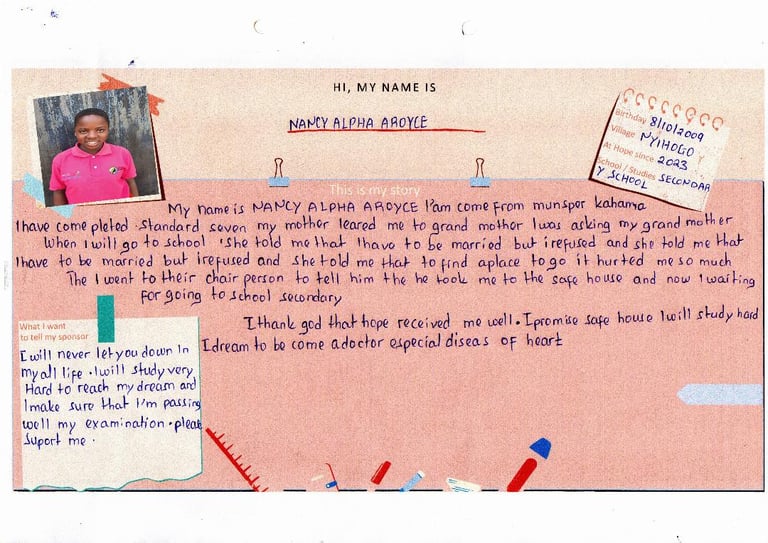 HI, MY NAME IS
NANCY ALPHA AROYCE
Birthday 8/10/2009
Village NYIHOGO
At Hope since 2023
School / Studies SECONDAR
Y SCHOOL
This is my story
My name is NANCY ALPHA AROYCE I'am come from munsper kahama
I have come pleted standard seven my mother leared me to grand mother I was asking my grand mother
When I will go to school . She told me that I have to be married but irefused and she told me that
I have to be married but irefused and she told me that to find aplace to go it hurted me so much
The I went to their chair person to tell him the he took me to the safe house and now I waiting
for going to school secodary
I thank god that hope received me well . I promise safe house I will study hard
I dream to be come adoctor especial diseas of heart
What I want
to tell my sponsor
I will never let you down In
my all life . I will study very
Hard to reach my dream and
I make sure that I'm passing
well my examination . pleas
Suport me .